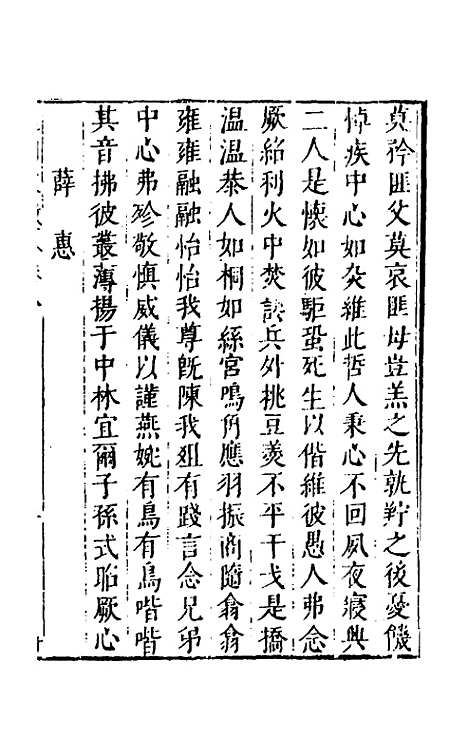 莫矜匪父莫哀匪母豈羔之先孰羜之後憂饑
悼疾中心如灸維此哲人秉心不回夙夜寢興
二人是懷如彼駏蛩死生以偕維彼愚人弗念
厥紿利火中焚訟兵外挑豆羹不平干戈是撟
温温恭人如桐如絲宮鳴角應羽振商隨翕翕
雍雍融融怡怡我尊旣陳我俎有踐言念兄弟
中心弗殄敬慎威儀以謹燕婉有鳥有鳥喈喈
其音拂彼叢薄揚于中林宜爾子孫式貽厥心
薛惠